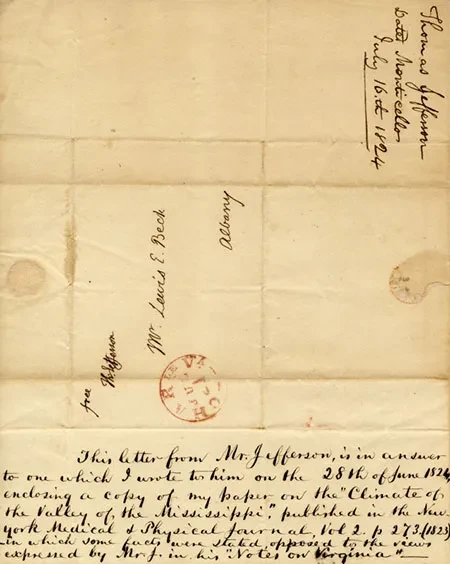 Thomas Jefferson
Dated Monticello
July 16th 1824
Mr. Lewis C. Beck
Albany
free
Th: Jefferson
This letter from Mr. Jefferson, is in answer
to one which I wrote to him on the 28th of June 1824,
enclosing a copy of my paper on the "Climate of
the Valley of the Mississippi," published in the New-
york Medical & Physical Journal Vol 2. p 273. (1823)
in which some facts were stated, opposed to the views
expressed by Mr. J. in his "Notes on Virginia"—